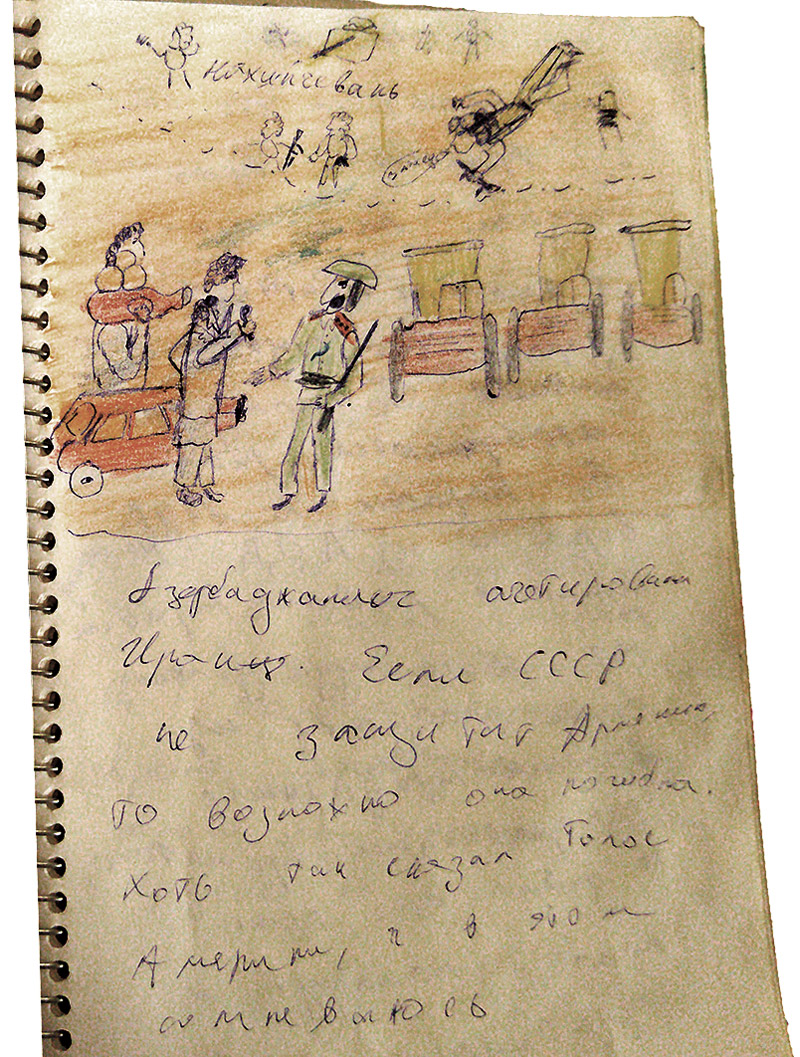 нохичевань
Азербаджанлюс агетировани
Ираиц. Если СССР
не защитит Армению,
то возможно она погибла.
Хоть так сказал Голос
Америки, я в этом
сомневаюсь